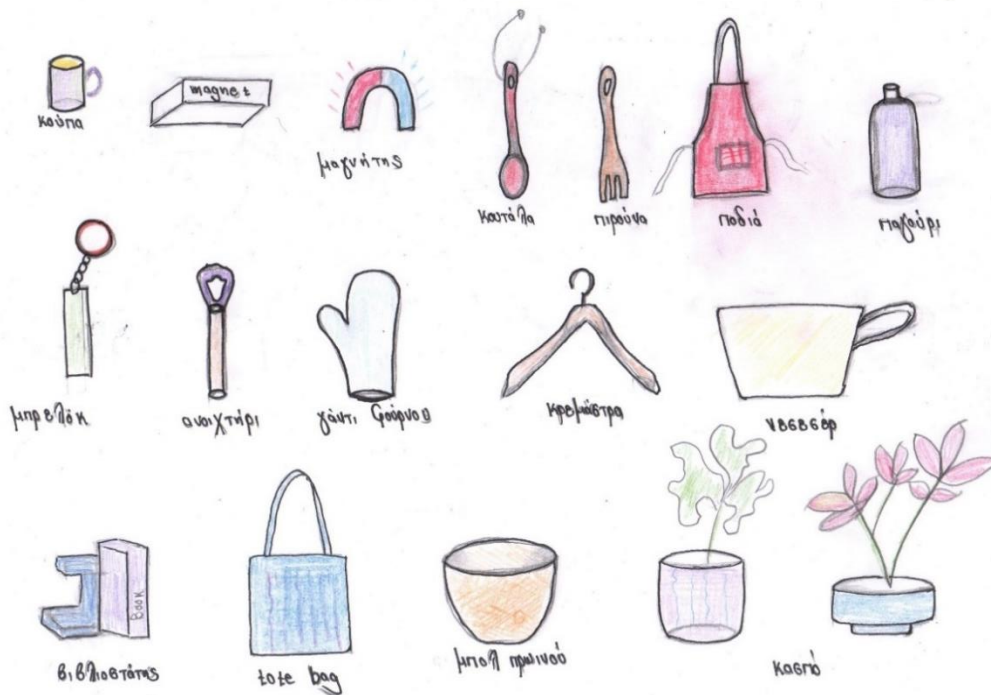 κούπα
magnet
μαγνήτης
κουτάλα
πιρούνα
ποδιά
παγούρι
μπρελόκ
ανοιχτήρι
γάντι φούρνου
κρεμάστρα
νεσεσέρ
Book
βιβλιοστάτης
tote bag
μπολ πρωινού
κασπό